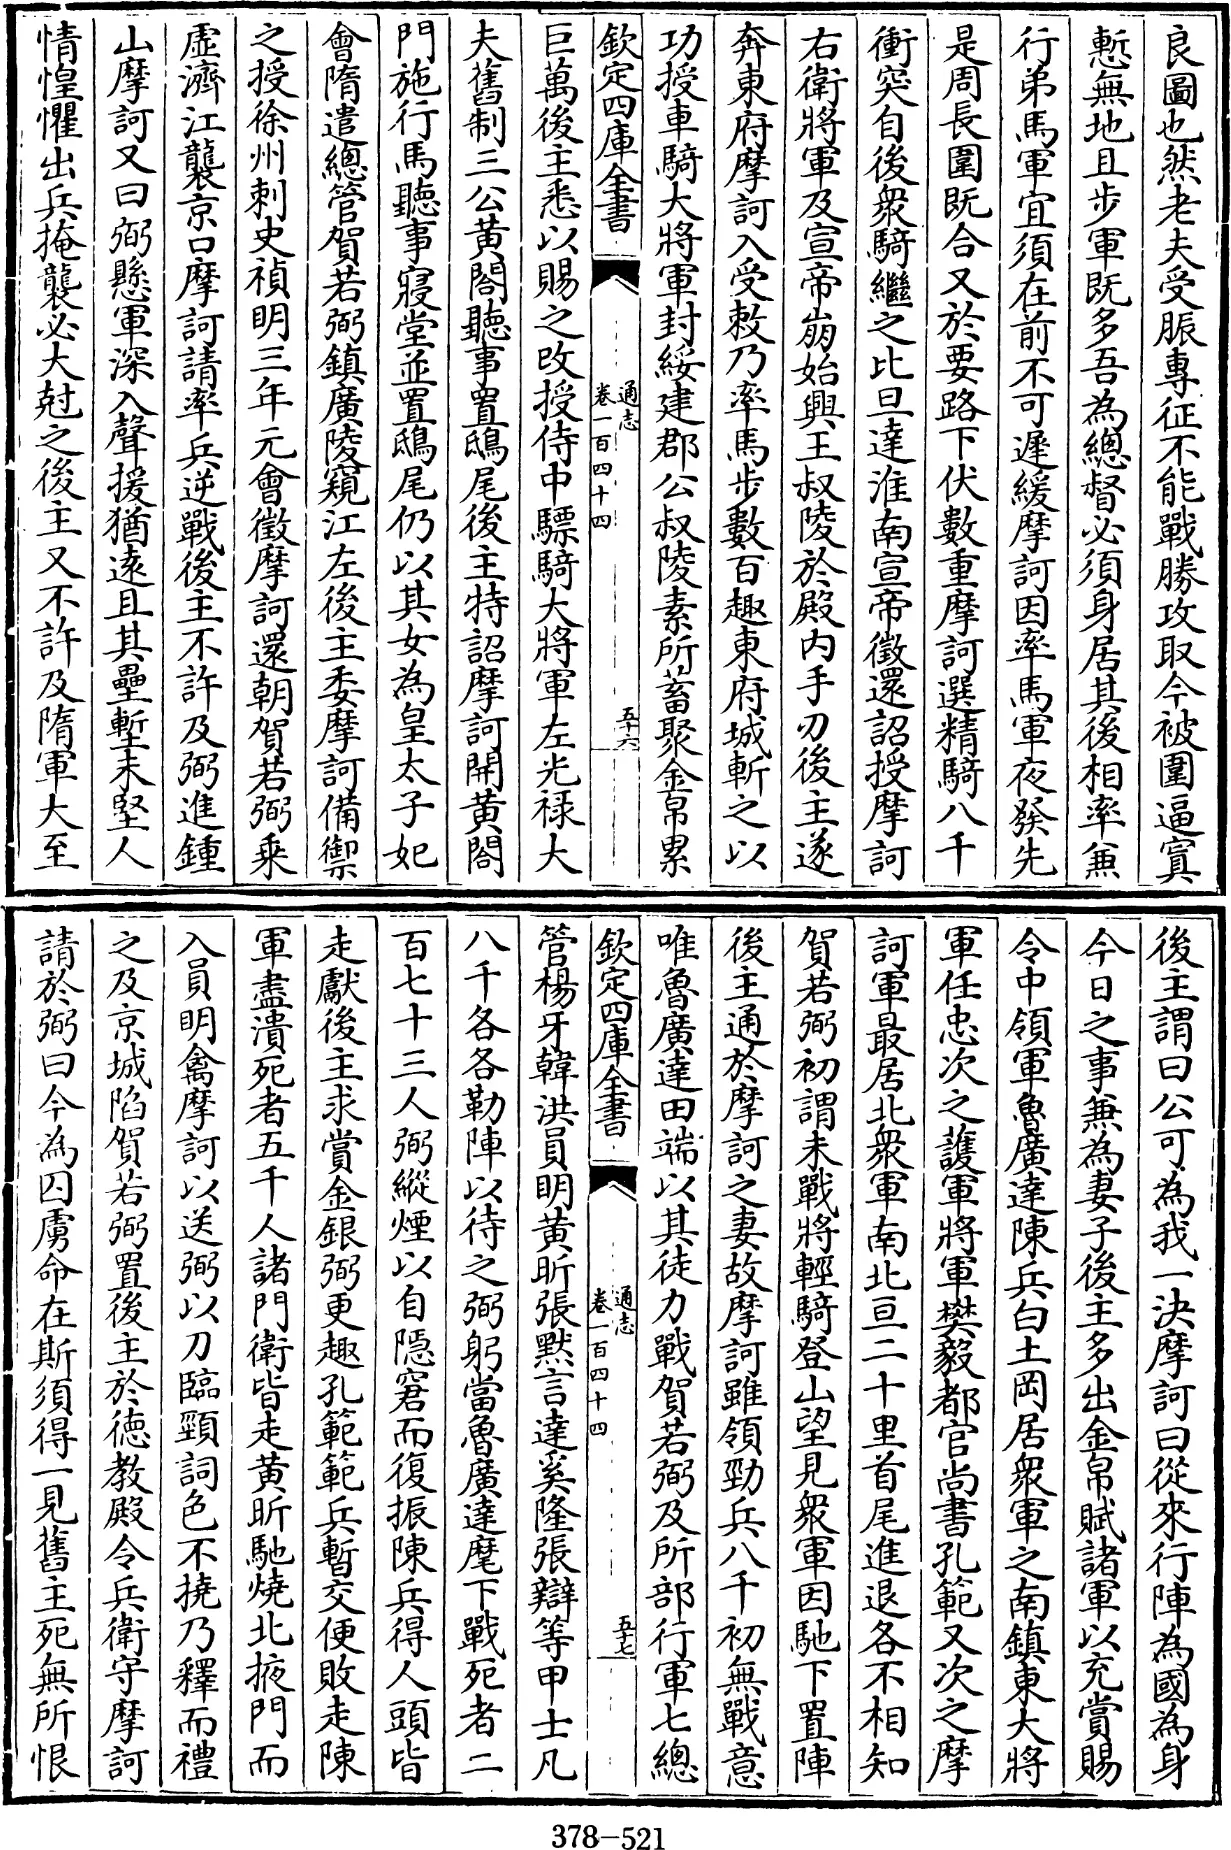 良圖也然老夫受脤專征不能戰勝攻取今被圍逼寘
慙無地且步軍既多吾為總督必須身居其後相率兼
行弟馬軍宜須在前不可遲緩摩訶因率馬軍夜發先
是周長圍既合又於要路下伏數重摩訶選精騎八千
衝突自後衆騎繼之比旦達淮南宣帝徵還詔授摩訶
右衛將軍及宣帝崩始興王叔陵於殿内手刃後主遂
奔東府摩訶入受敕乃率馬步數百趣東府城斬之以
功授車騎大將軍封綏建郡公叔陵素所蓄聚金帛累
欽定四庫全書
通志
卷一百四十四
五十六
巨萬後主悉以賜之改授侍中驃騎大將軍左光禄大
夫舊制三公黄閤聽事置鴟尾後主特詔摩訶開黄閤
門施行馬聽事寢堂並置鴟尾仍以其女為皇太子妃
會隋遣總管賀若弼鎮廣陵窺江左後主委摩訶備禦
之授徐州刺史禎明三年元會徵摩訶還朝賀若弼乘
虚濟江襲京口摩訶請率兵逆戰後主不許及弼進鍾
山摩訶又曰弼懸軍深入聲援猶遠且其壘塹未堅人
情惶懼出兵掩襲必大尅之後主又不許及隋軍大至
後主謂曰公可為我一決摩訶曰從來行陣為國為身
今日之事兼為妻子後主多出金帛賦諸軍以充賞賜
令中領軍魯廣達陳兵白土岡居衆軍之南鎮東大將
軍任忠次之護軍將軍樊毅都官尚書孔範又次之摩
訶軍最居北衆軍南北亘二十里首尾進退各不相知
賀若弼初謂未戰將輕騎登山望見衆軍因馳下置陣
後主通於摩訶之妻故摩訶雖領勁兵八千初無戰意
唯魯廣達田端以其徒力戰賀若弼及所部行軍七總
欽定四庫全書
通志
卷一百四十四
五十七
管楊牙韓洪員明黄昕張黙言達奚隆張辯等甲士凡
八千各各勒陣以待之弼躬當魯廣達麾下戰死者二
百七十三人弼縱煙以自隱窘而復振陳兵得人頭皆
走獻後主求賞金銀弼更趣孔範範兵暫交便敗走陳
軍盡潰死者五千人諸門衛皆走黄昕馳燒北掖門而
入員明禽摩訶以送弼以刀臨頸詞色不撓乃釋而禮
之及京城陷賀若弼置後主於德教殿令兵衛守摩訶
請於弼曰今為囚虜命在斯須得一見舊主死無所恨
378-521